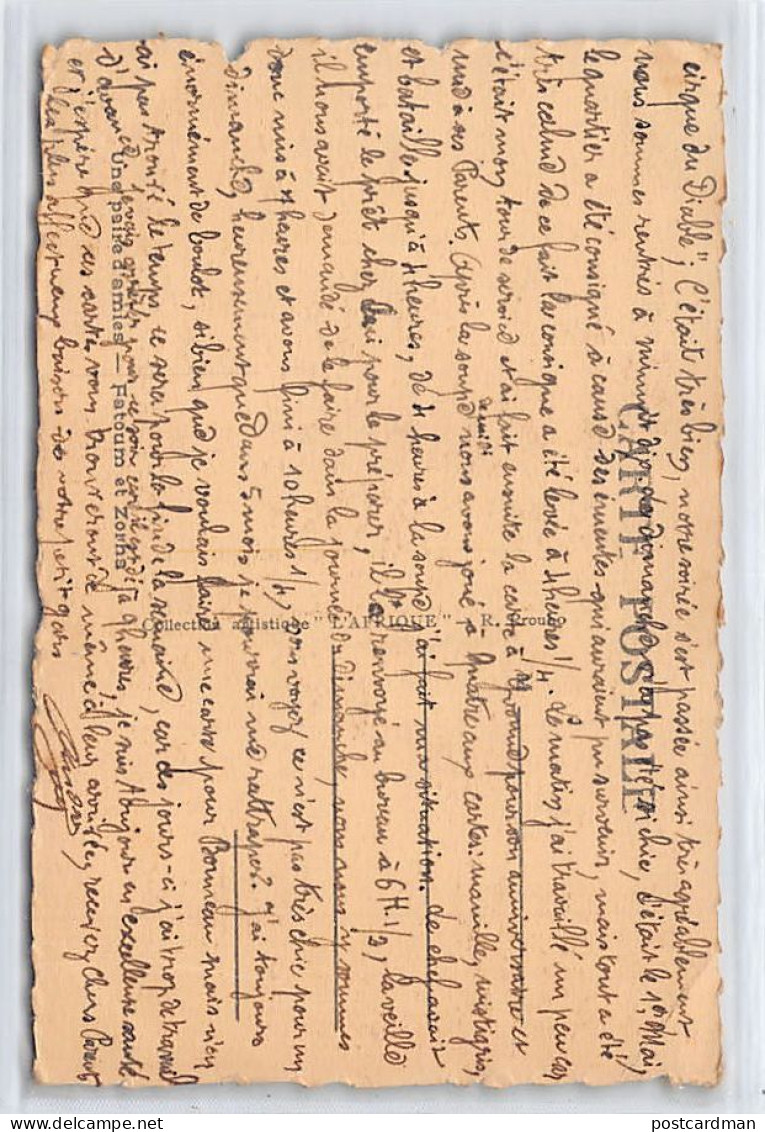 cirque du Diable"; C'était très bien, notre soirée s'est passée ainsi très agréablement
nous sommes rentrés à minuit dimanche n'a pas été si chic, c'était le 1er Mai,
le quartier a été consigné à cause des émeutes qui auraient pu survenir, mais tout a été
très calme de ce fait la consigne a été levée à 4 heures 1/4. Le matin j'ai travaillé un peu car
c'était mon tour de service et ai fait ensuite la carte à pour son anniversaire et
une à ses Parents. Après la soupe de midi nous avons joué à quatre aux cartes: manille, mistigris,
et bataille jusqu'à 4 heures, de 4 heures à la soupe j'ai fait ma situation. Le chef avait
emporté le prêt chez lui pour le préparer, il l'a renvoyé au bureau à 6 H. 1/2, la veille
il nous avait demandé de le faire dans la journée du dimanche, nous nous y sommes
donc mis à 7 heures et avons fini à 10 heures 1/4, vous voyez ce n'est pas très chic pour un
Dimanche, heureusement que dans 5 mois je pourrai me rattraper. J'ai toujours
énormément de boulot, si bien que je voulais faire une carte pour Bonneau mais n'en
ai pas trouvé le temps, ce sera pour la fin de la semaine, car ces jours-ci j'ai trop de travail
d'avance, je vais arrêter pour ce soir car il est déjà 9 heures, je suis toujours en excellente santé
et j'espère que ces cartes vous trouveront de même à leur arrivée, recevez chers Parents
les plus affectueux baisers de votre petit gars
CARTE POSTALE
Collection artistique "L'AFRIQUE" - R. Prouho
Une paire d'amies — Fatoum et Zorha
postcardman